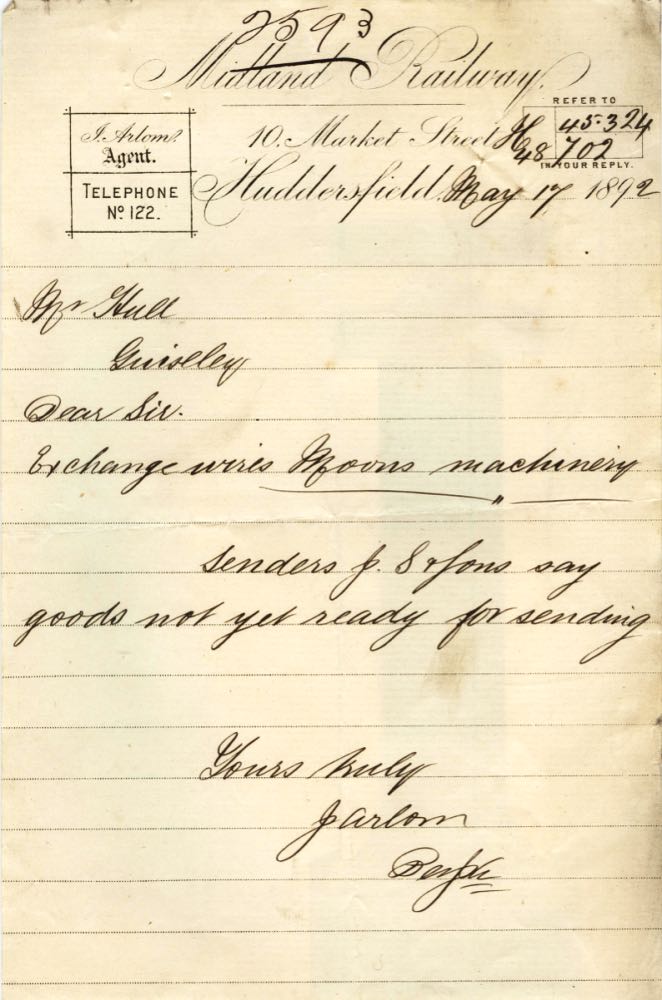 2593
Midland Railway.
REFER TO
45-324
H
48702
IN YOUR REPLY.
J. Arlom.
Agent.
TELEPHONE
No 122.
10. Market Street
Huddersfield. May 17 1892
Mr Hull
Guiseley
Dear Sir.
Exchange wires Moons machinery
"
senders J. S & Sons say
goods not yet ready for sending
Yours truly
J Arlom
Per